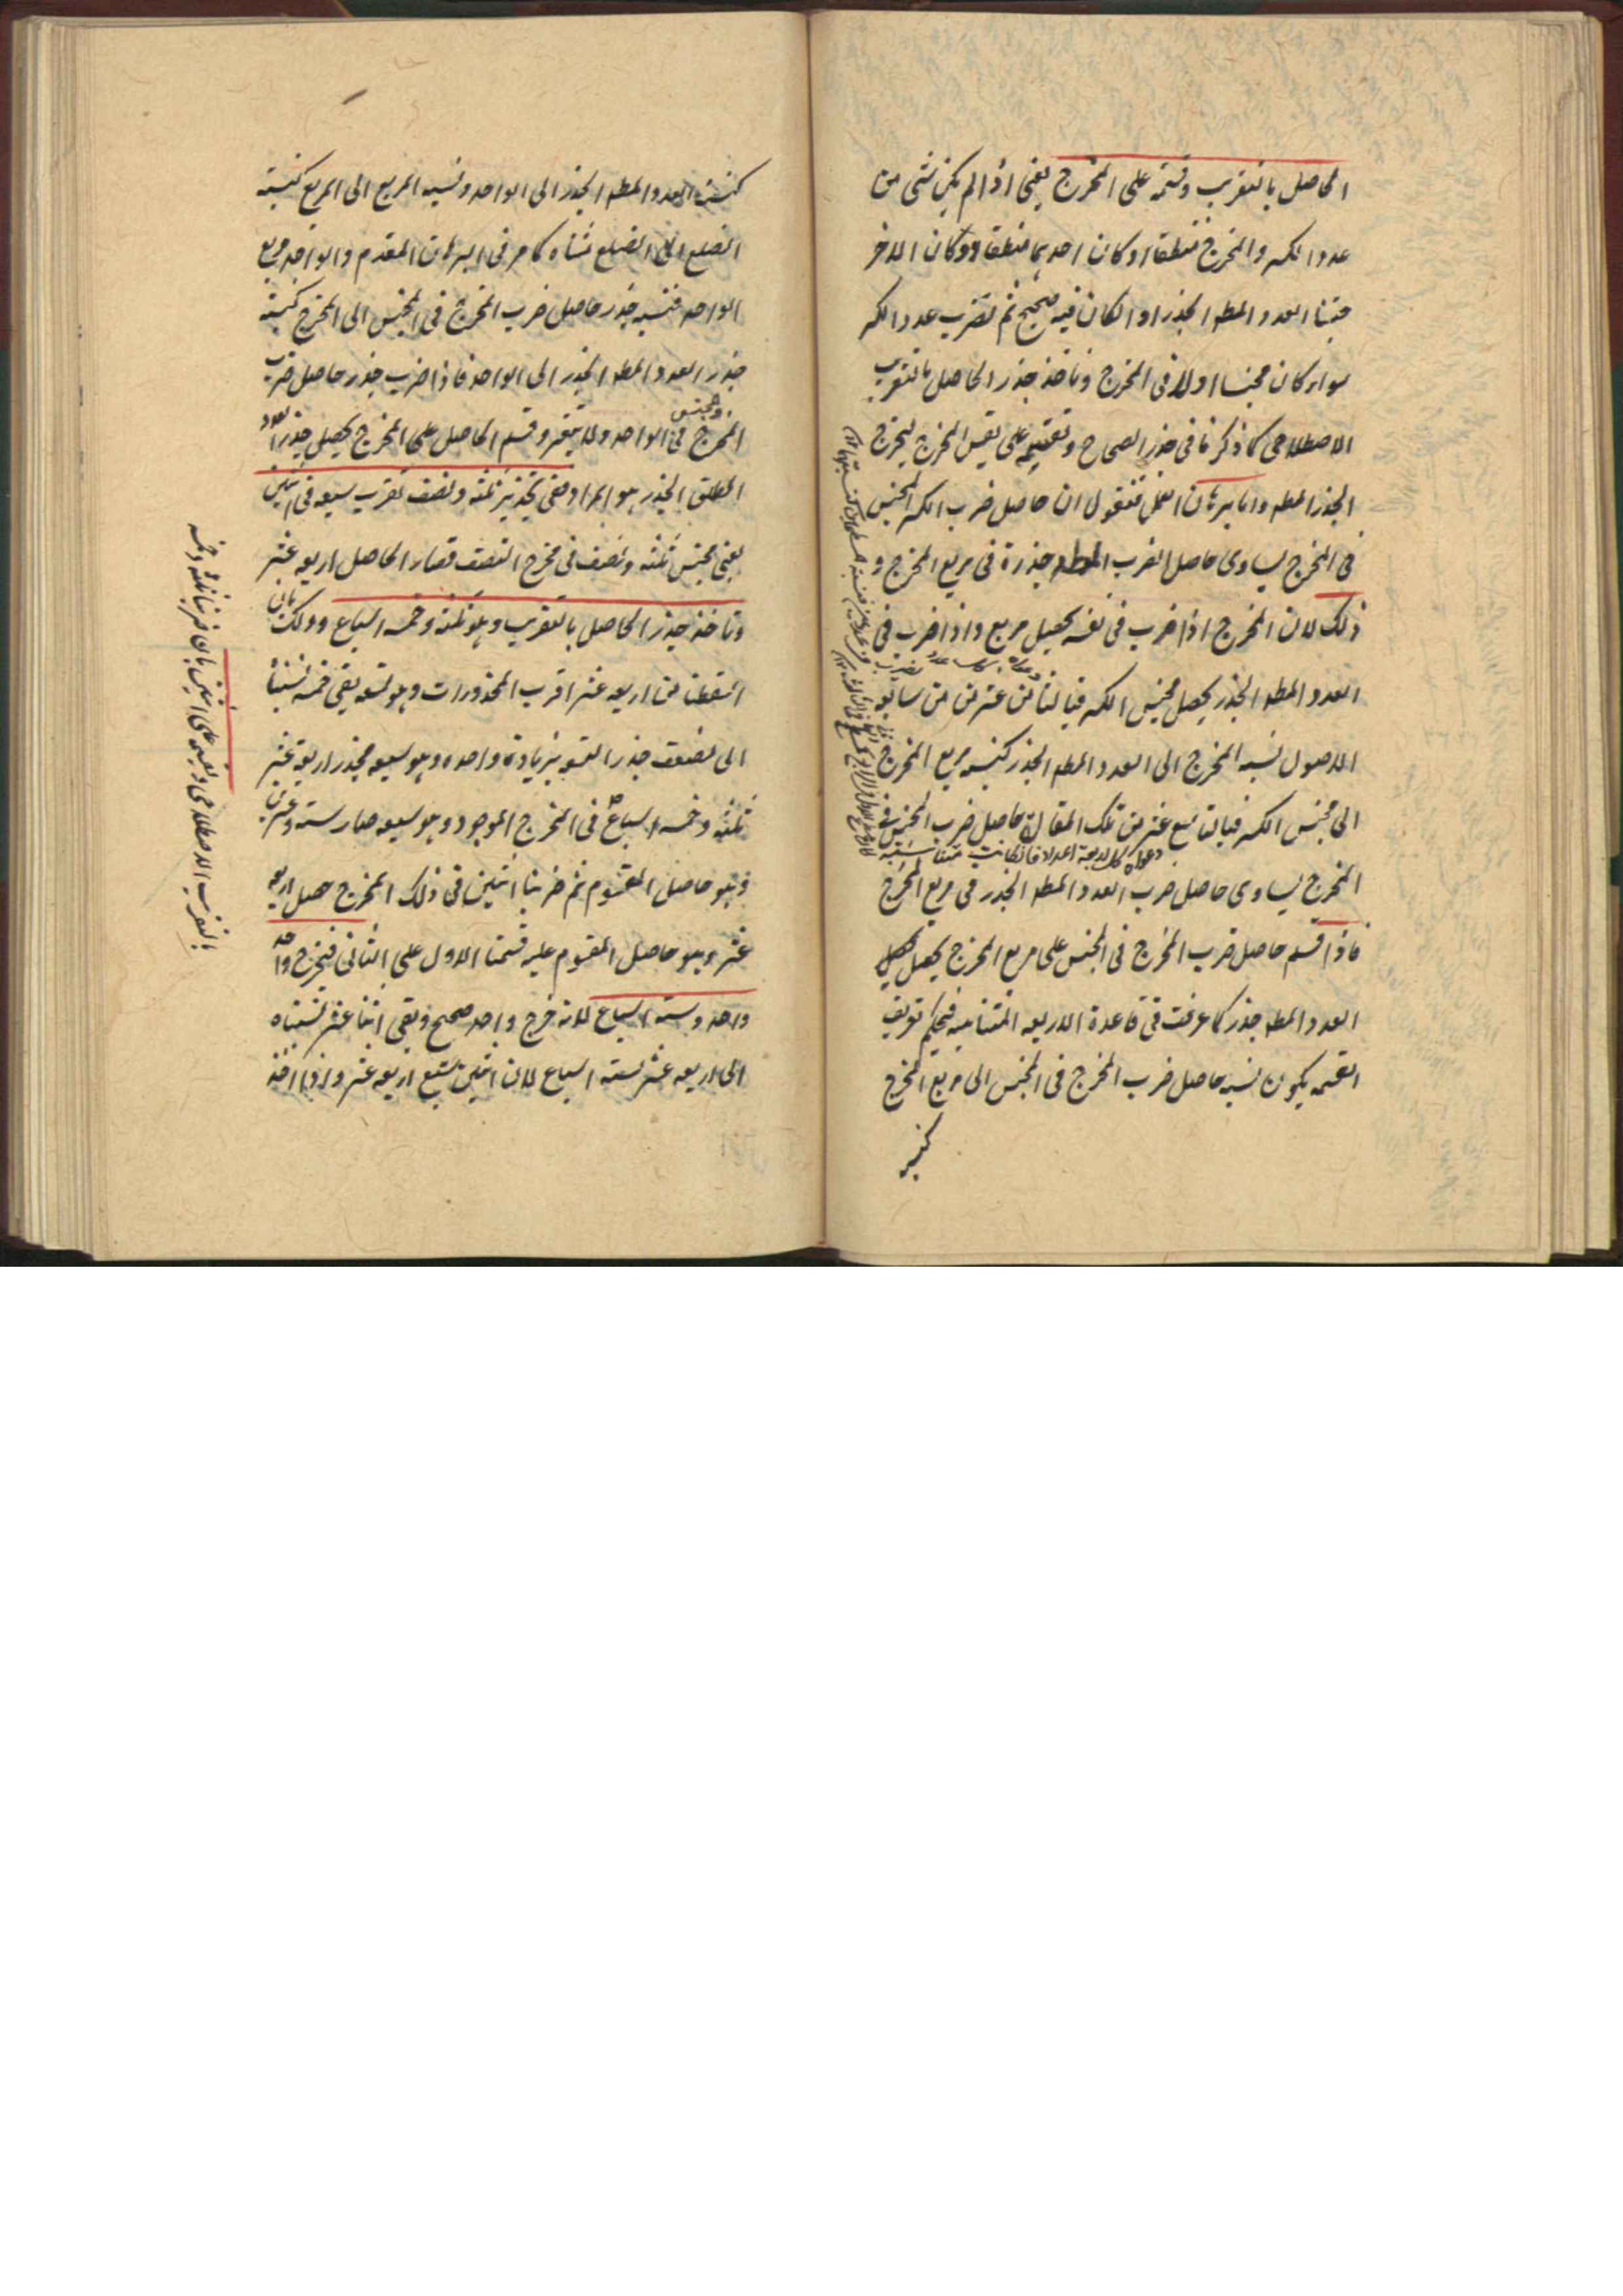 الحاصل بالتقريب وقسمته على المخرج يعنى اذا لم يكن شى من
عدد الكسر والمخرج منطقا او كان احدهما منطقا دون كان الاخر
جنسنا العدد المطـ الجذر او الكان فيه صحيح ثم نضرب عدد الكسر
سواء كان مجنسا اولا فى المخرج وناخذ جذر الحاصل بالتقريب
الاصطلاحى كما ذكرنا فى جذر الصحاح ونقسمه على نفس المخرج ليخرج
الجذر المطـ واما برهان العمل فنقول ان حاصل ضرب الكسر المجنس
فى المخرج يساوى حاصل الضرب المطـ جذره فى مربع المخرج و
ذلك لان المخرج اذا ضرب فى نفسه يحصل مربع واذا ضرب فى
العدد المطـ الجذر يحصل مجنس الكسر فبالثامن عشر من من سابعة
الاصول نسبة المخرج الى العدد المطـ الجذر كنسبة مربع المخرج
الى مجنس الكسر فبالتاسع عشر من تلك المقالة حاصل ضرب المجنس فى
دعواه كل اربعة اعداد فاذا كانت متناسبة
المخرج يساوى حاصل ضرب العدد المطـ الجذر فى مربع المخرج
فاذا قسم حاصل ضرب المخرج فى المجنس على مربع المخرج يحصل
العدد المطـ جذر كما عرفت فى قاعدة الاربعة المتناسبة فبحكم تعريف
القسمة يكون نسبة حاصل ضرب المخرج فى المجنس الى مربع المخرج
كنسبة
كنسبة العدد المطـ الجذر الى الواحد ونسبة المربع الى المربع كنسبة
الضلع الى الضلع مثناه كما مر فى البرهان المقدم والواحد مربع
الواحد فنسبة جذر حاصل ضرب المخرج فى المجنس الى المخرج كنسبة
جذر العدد المطـ الجذر الى الواحد فاذا ضرب جذر حاصل ضرب
المخرج فى المجنس فى الواحد ولا يتغير وقسم الحاصل على المخرج يحصل جذر العدد
المطلق الجذر هو المراد ففى تجذير ثلثه ونصف تضرب سبعه فى اثنين
يعنى مجنس ثلثه ونصف فى مخرج النصف فصار الحاصل اربعه عشر
وتاخذ جذر الحاصل بالتقريب وهو ثلثه وخمسه اسباع وذلك بان
اسقطنا من اربعه عشر اقرب المجذورات وهو تسعه يبقى خمسه نسبناها
الى ضعف جذر التسعه بزيادة واحده وهو سبعه فجذر اربعة عشر
ثلثه وخمسه اسباع فى المخرج الموجود وهو سبعه صار سته وعشرين
وهو حاصل المقسوم ثم ضربنا اثنين فى ذلك المخرج حصل اربعه
عشر وهو حاصل المقسوم عليه قسمنا الاول على الثانى فيخرج
واحد وسته اسباع لانه خرج واحد صحيح وبقى اثنا عشر نسبناه
الى اربعه عشر بسته اسباع لان اثنين سبع اربعه عشر واذا اخذ
بالتقريب الاصطلاحى ونقسمه على اثنين بان ضربنا ثلثه وخمسه